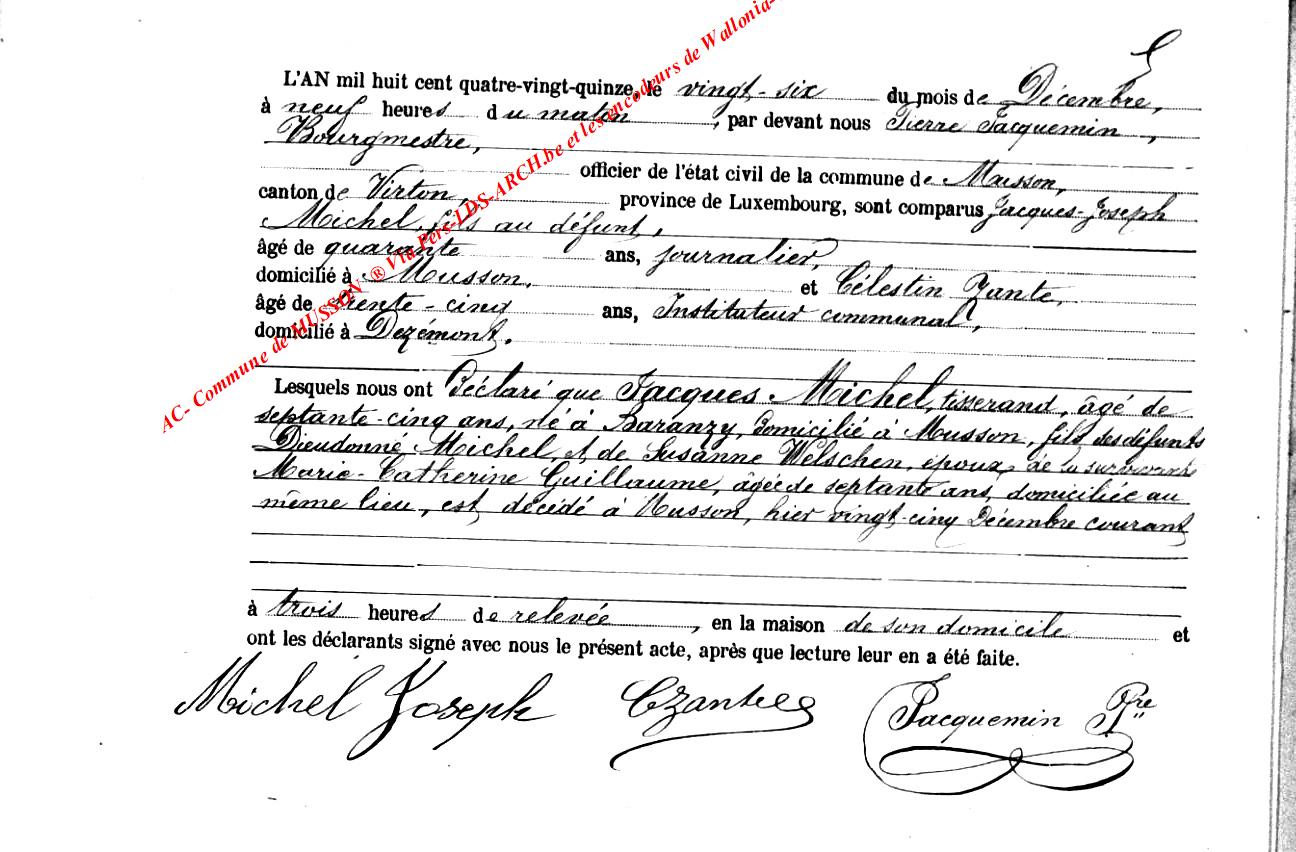 L'AN mil huit cent quatre-vingt-quinze, le vingt-six du mois de Décembre,
à neuf heures du matin, par devant nous Pierre Jacquemin,
Bourgmestre,
officier de l'état civil de la commune de Musson,
canton de Virton, province de Luxembourg, sont comparus Jacques-Joseph
Michel, fils au défunt,
âgé de quarante ans, journalier,
domicilié à Musson, et Célestin Zante,
âgé de trente-cinq ans, Instituteur communal,
domicilié à
Lesquels nous ont Déclaré que Jacques Michel, tisserand, âgé de
septante-cinq ans, né à Baranzy, domicilié à Musson, fils des défunts
Dieudonné Michel, et de Susanne Welschen, époux de la survivante
Marie-Catherine Guillaume, âgée de septante ans, domiciliée au
même lieu, est décédé à Musson, hier vingt-cinq Décembre courant
à trois heures de relevée, en la maison de son domicile et
ont les déclarants signé avec nous le présent acte, après que lecture leur en a été faite.
Michel Joseph CZante Jacquemin Pre
AC- Commune de MUSSON ® Via Pers-LDS-ARCH.be et les encodeurs de Wallonia-